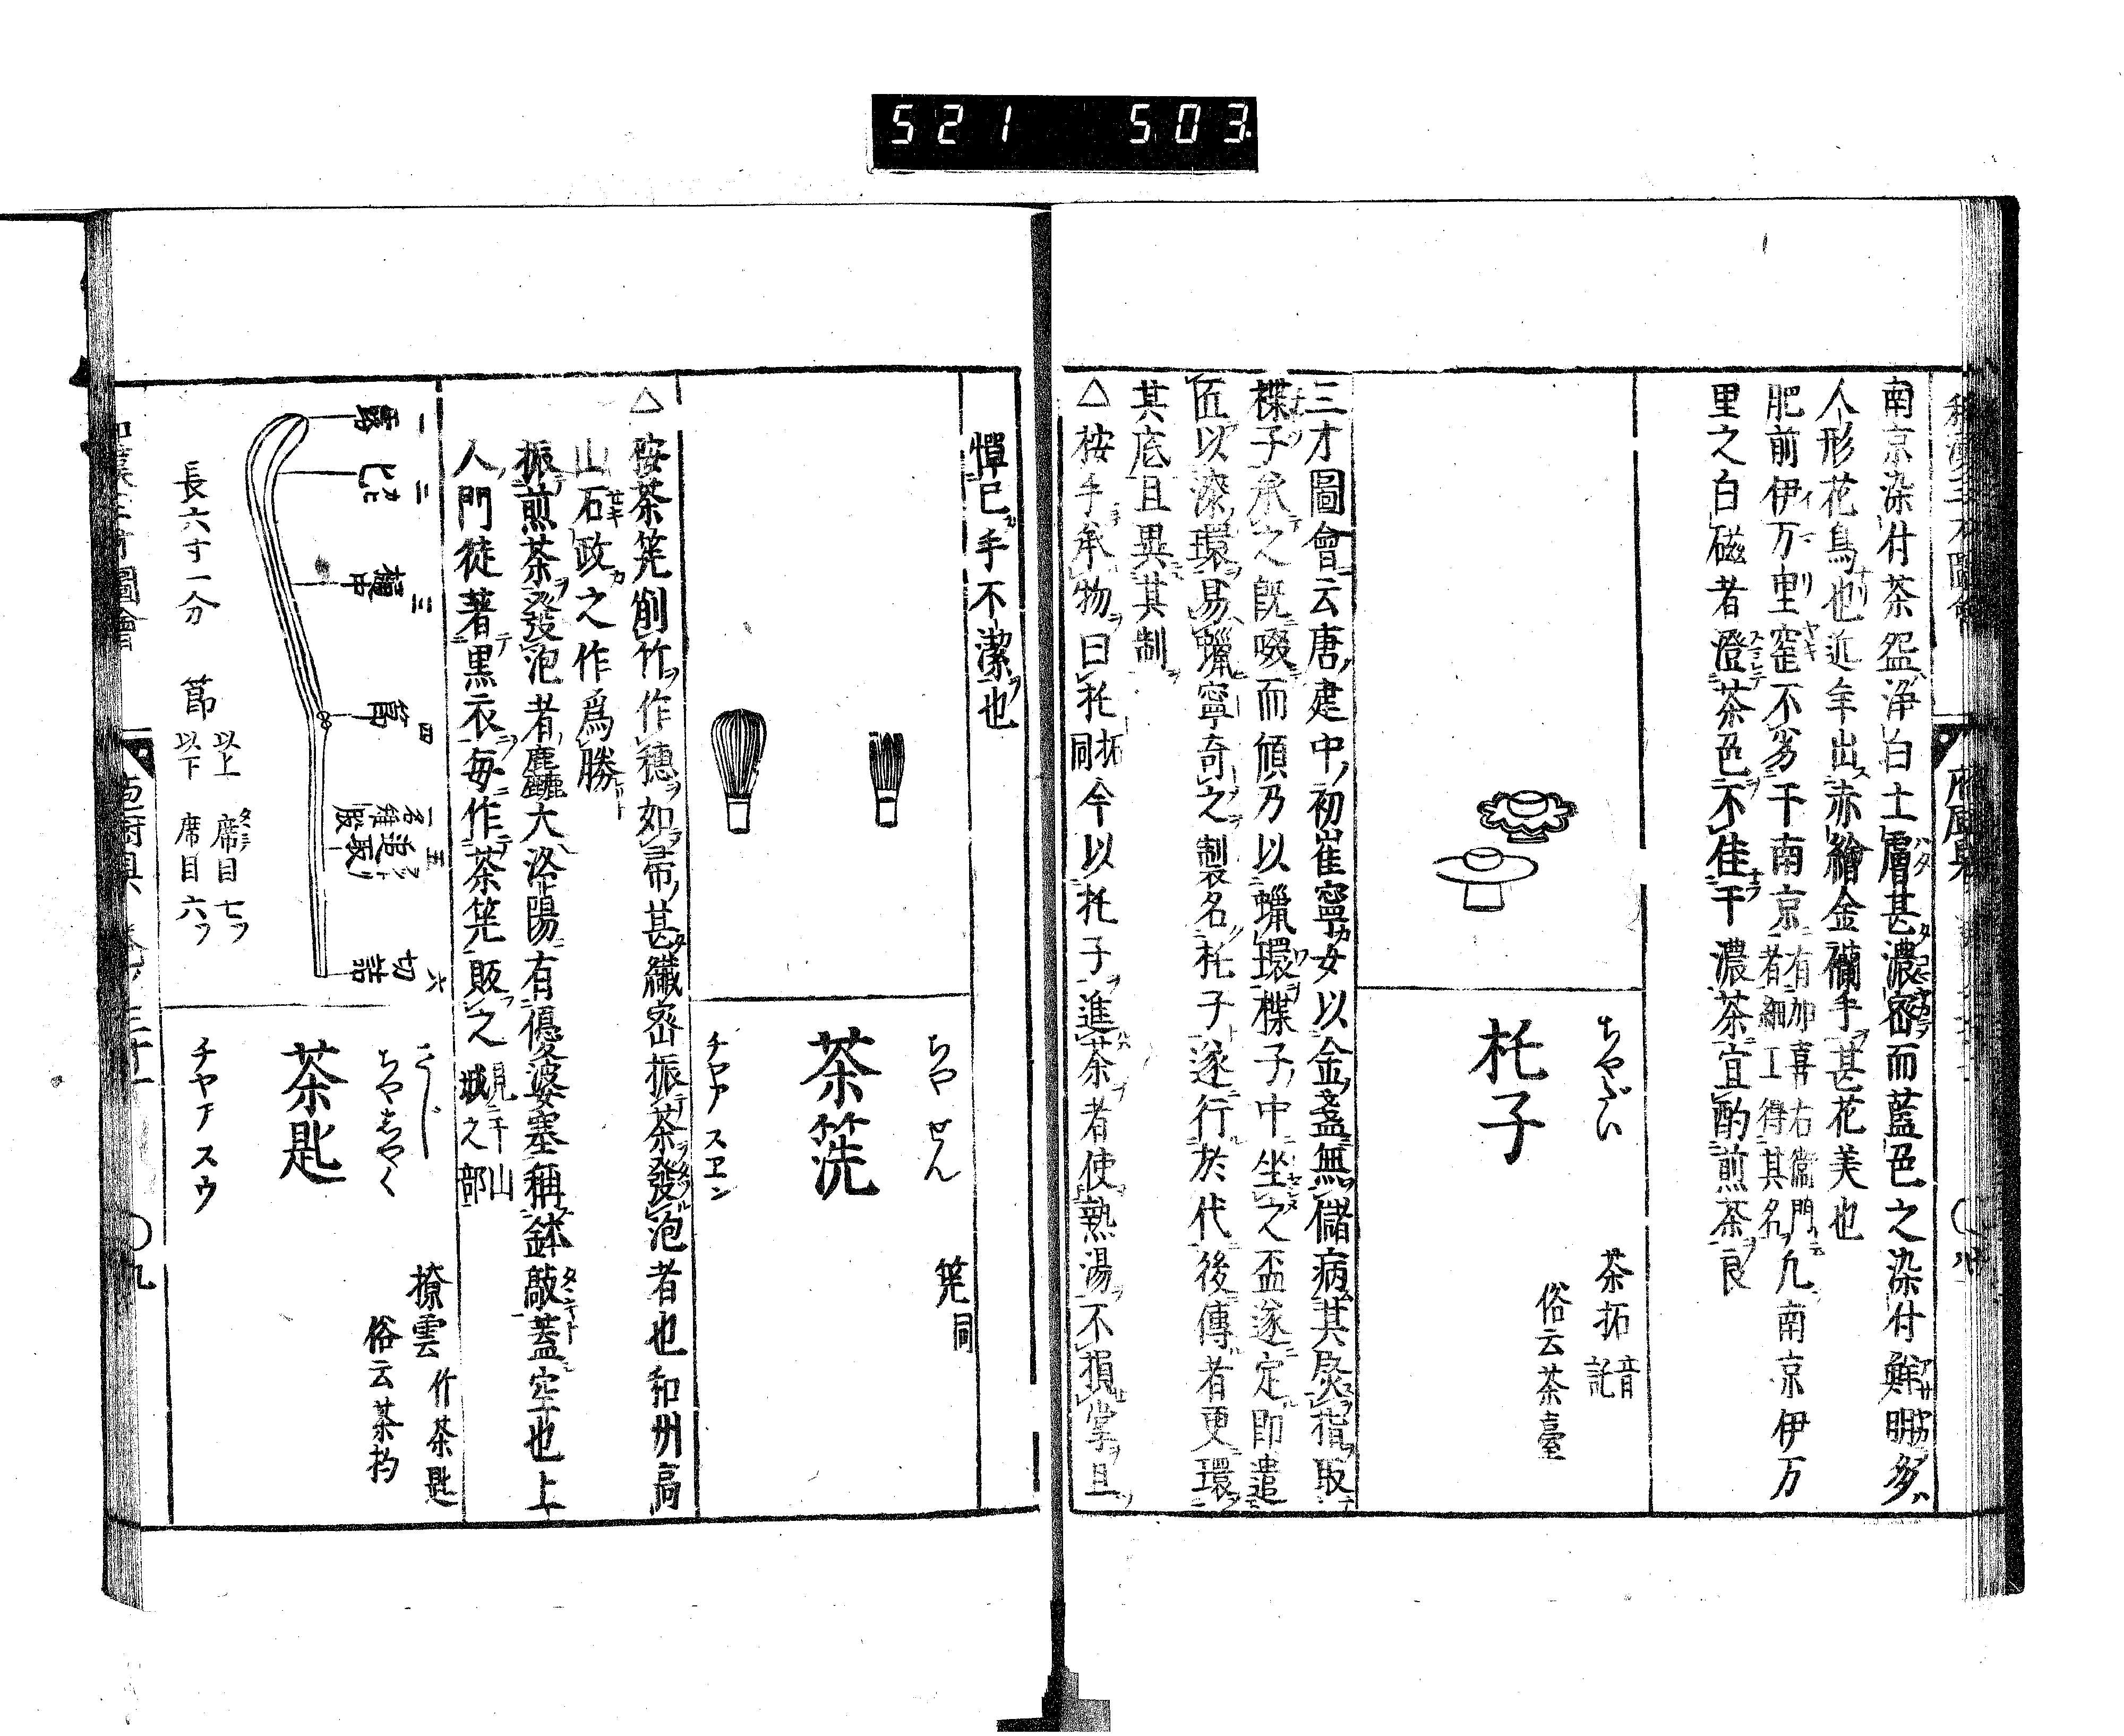 521 503
南京染付茶盌浄白土膚甚濃密而藍色之染付鮮明多
人形花鳥也近年出赤繪金襴手甚花美也
肥前伊万里窑不劣于南京有加喜右衞門
者細工得其名凡南京伊万
里之白磁者澄茶色不佳于濃茶宜酌煎茶良
ちやだい
托子
茶拓音託
俗云茶臺
三才圖會云唐建中初崔寧女以金盞無儲病其熨指取
楪子承之既啜而傾乃以蠟環楪子中坐之盃遂定即遣
匠以漆環易蠟寧奇之製名托子遂行於代後傳者更環
其底且異其制
△桉手承物曰托拓同今以托子進茶者使熱湯不損掌且
憚已手不潔也
ちやせん
茶筅
チヤアスヱン
筅同
△桉茶筅削竹作穗如帚甚纎密振茶發泡者也和州高
山石政之作作爲勝
振煎茶發泡者麤大洛陽有優婆塞稱鉢敲蓋空也上
人門徒著黒衣毎作茶筅販之見于山
城之部
一露
二匕
三樋中
四節
五追取
一名雉股
六切詰
長六寸一分
節
以上席目七ツ
以下席目六ツ
さじ
ちやしやく
茶匙
チヤアスウ
撩雲
竹茶匙
俗云茶杓
圖會
庖厨具
三十一
〇九